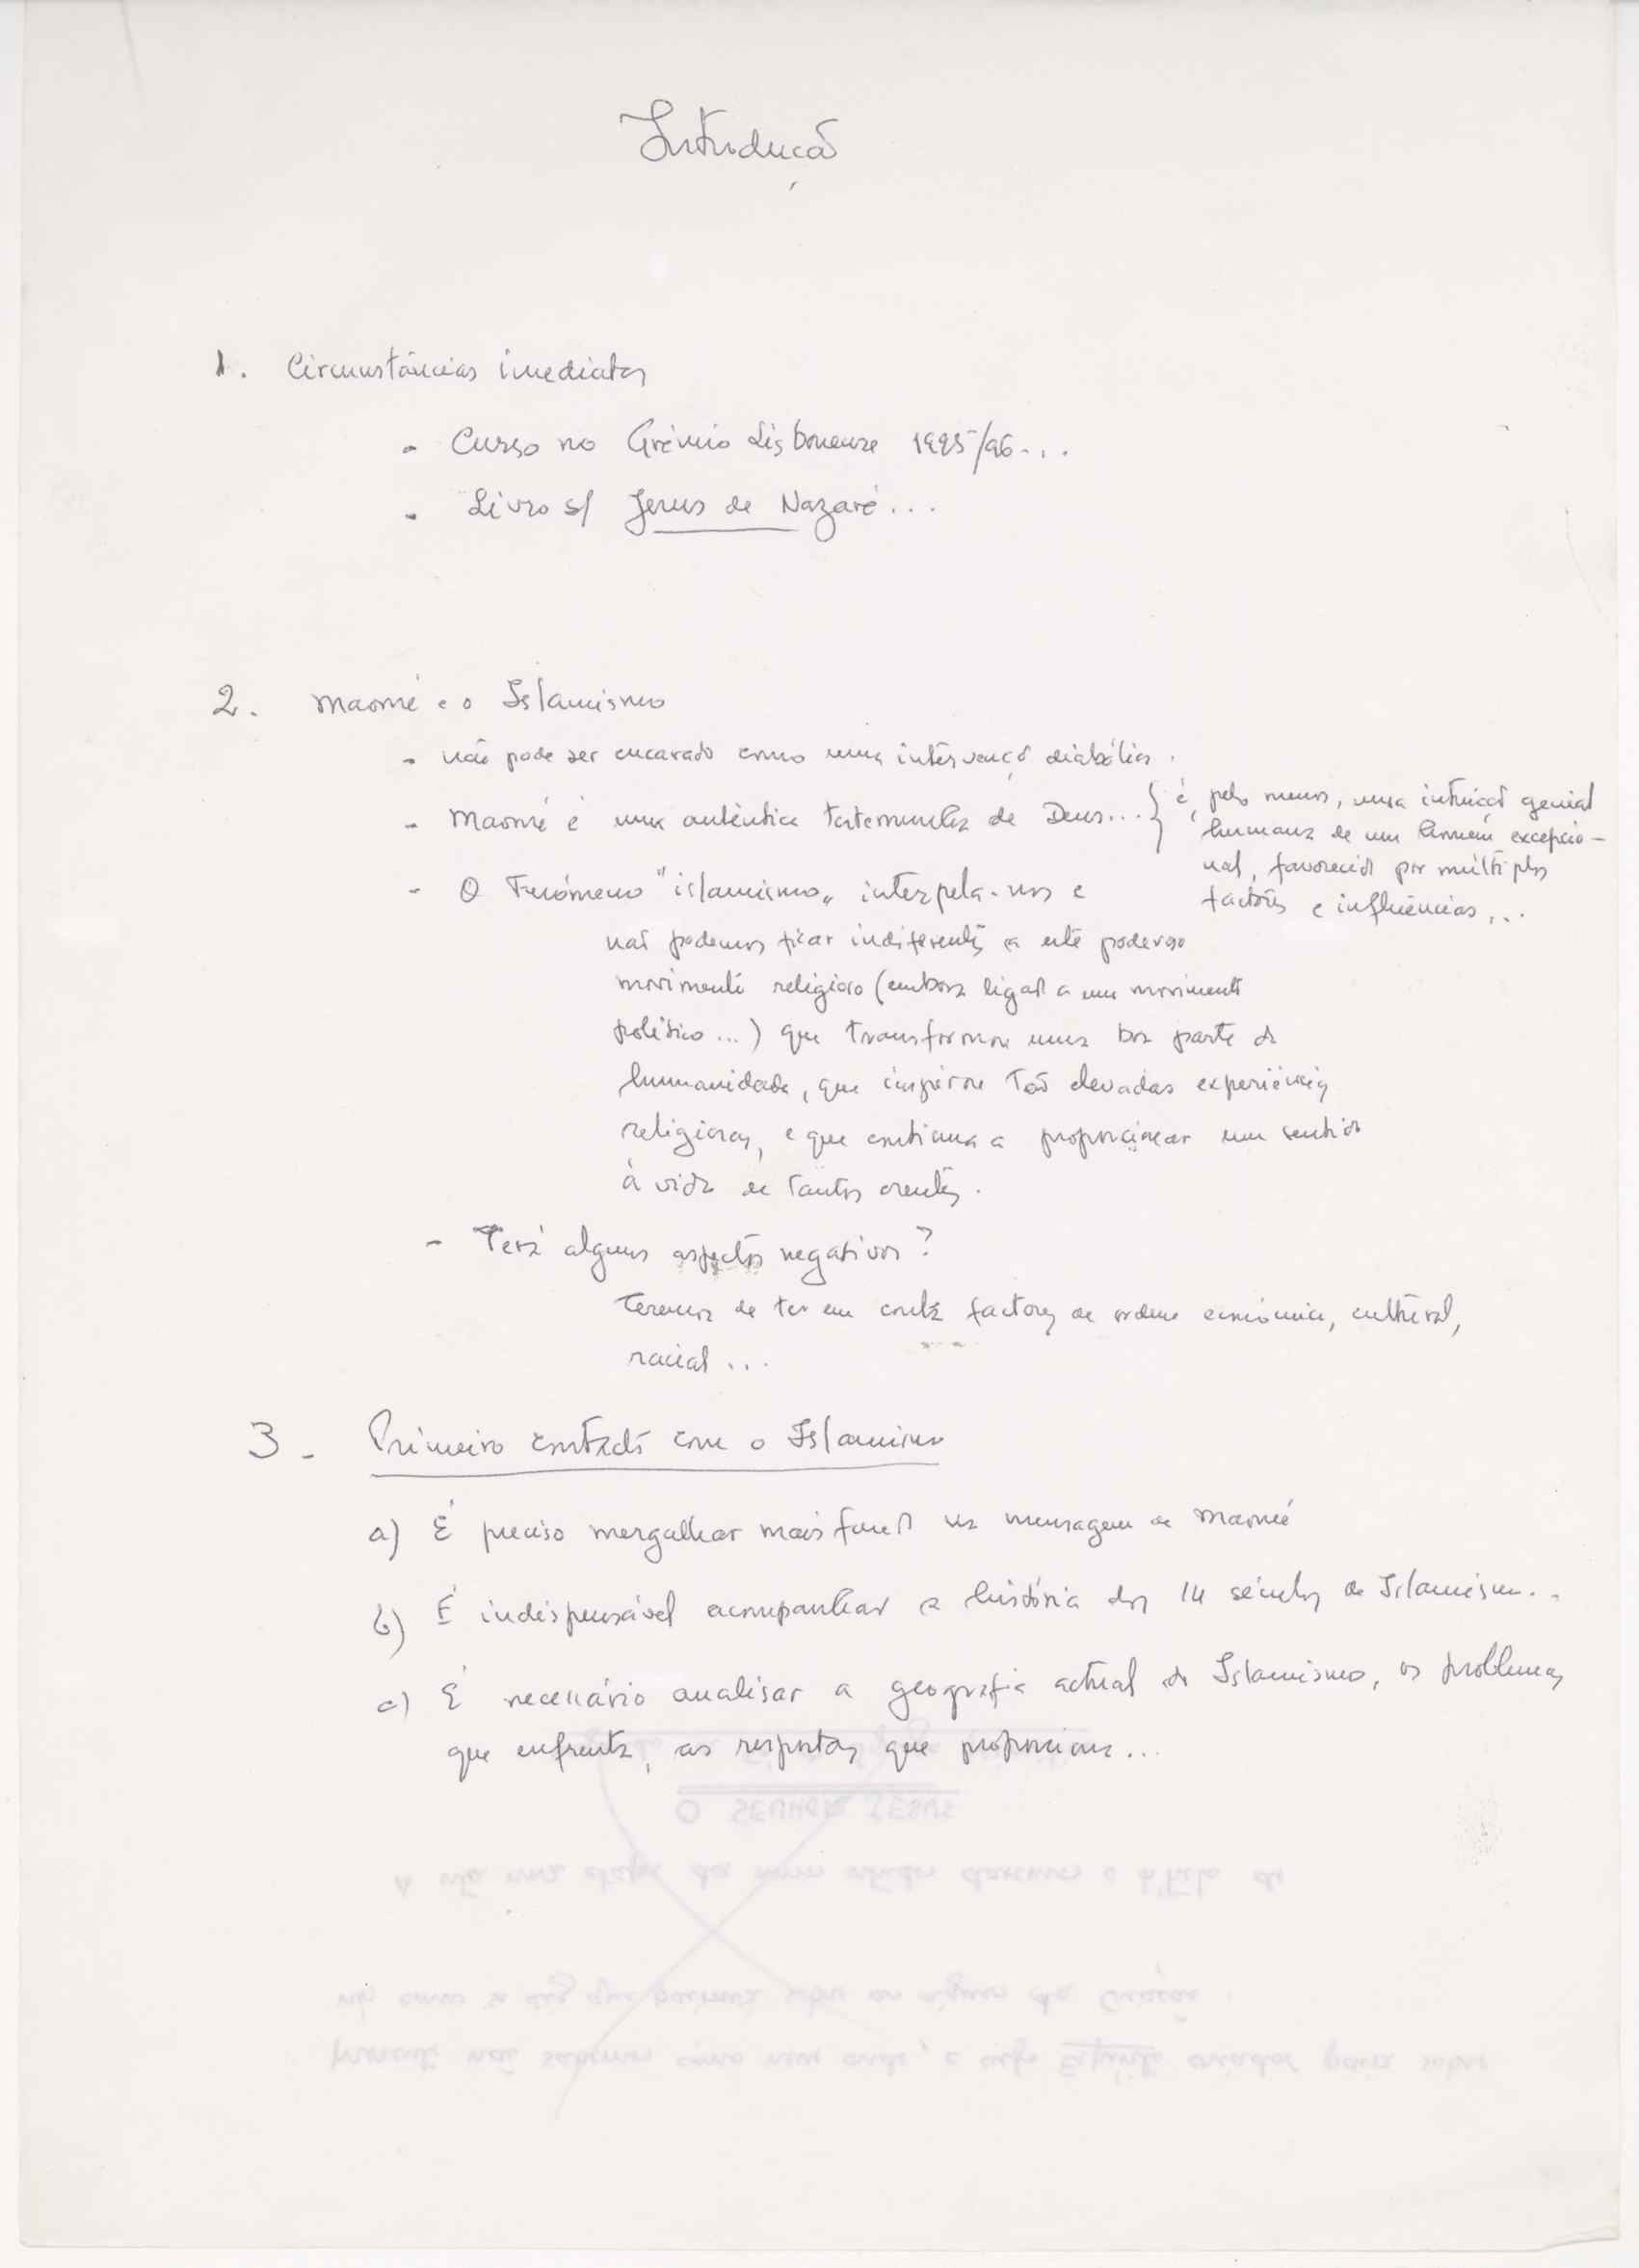 Introdução
1. Circunstâncias imediatas
- Curso no Grémio Lisbonense 1995/96...
- Livro s/ Jesus de Nazaré...
2. Maomé e o Islamismo
- não pode ser encarado como uma intervenção diabólica.
- Maomé é uma autêntica testemunha de Deus... } é, pelo menos, uma intuição genial
humana de um homem excepcio-
nal, favorecido por múltiplos
factores e influências...
- O Fenómeno "islamismo" interpela-nos e
não podemos ficar indiferentes a este poderoso
movimento religioso (embora ligado a um movimento
político...) que transformou uma boa parte da
humanidade, que inspirou tão elevadas experiências
religiosas, e que continua a proporcionar um sentido
à vida de tantos crentes.
- Terá alguns aspectos negativos?
Teremos de ter em conta factores de ordem económica, cultural,
racial...
3 - Primeiro contacto com o Islamismo
a) É preciso mergulhar mais fundo na mensagem de Maomé
b) É indispensável acompanhar a história dos 14 séculos de Islamismo..
c) É necessário analisar a geografia actual do Islamismo, os problemas
que enfrenta, as respostas que proporciona...
O SENHOR JESUS